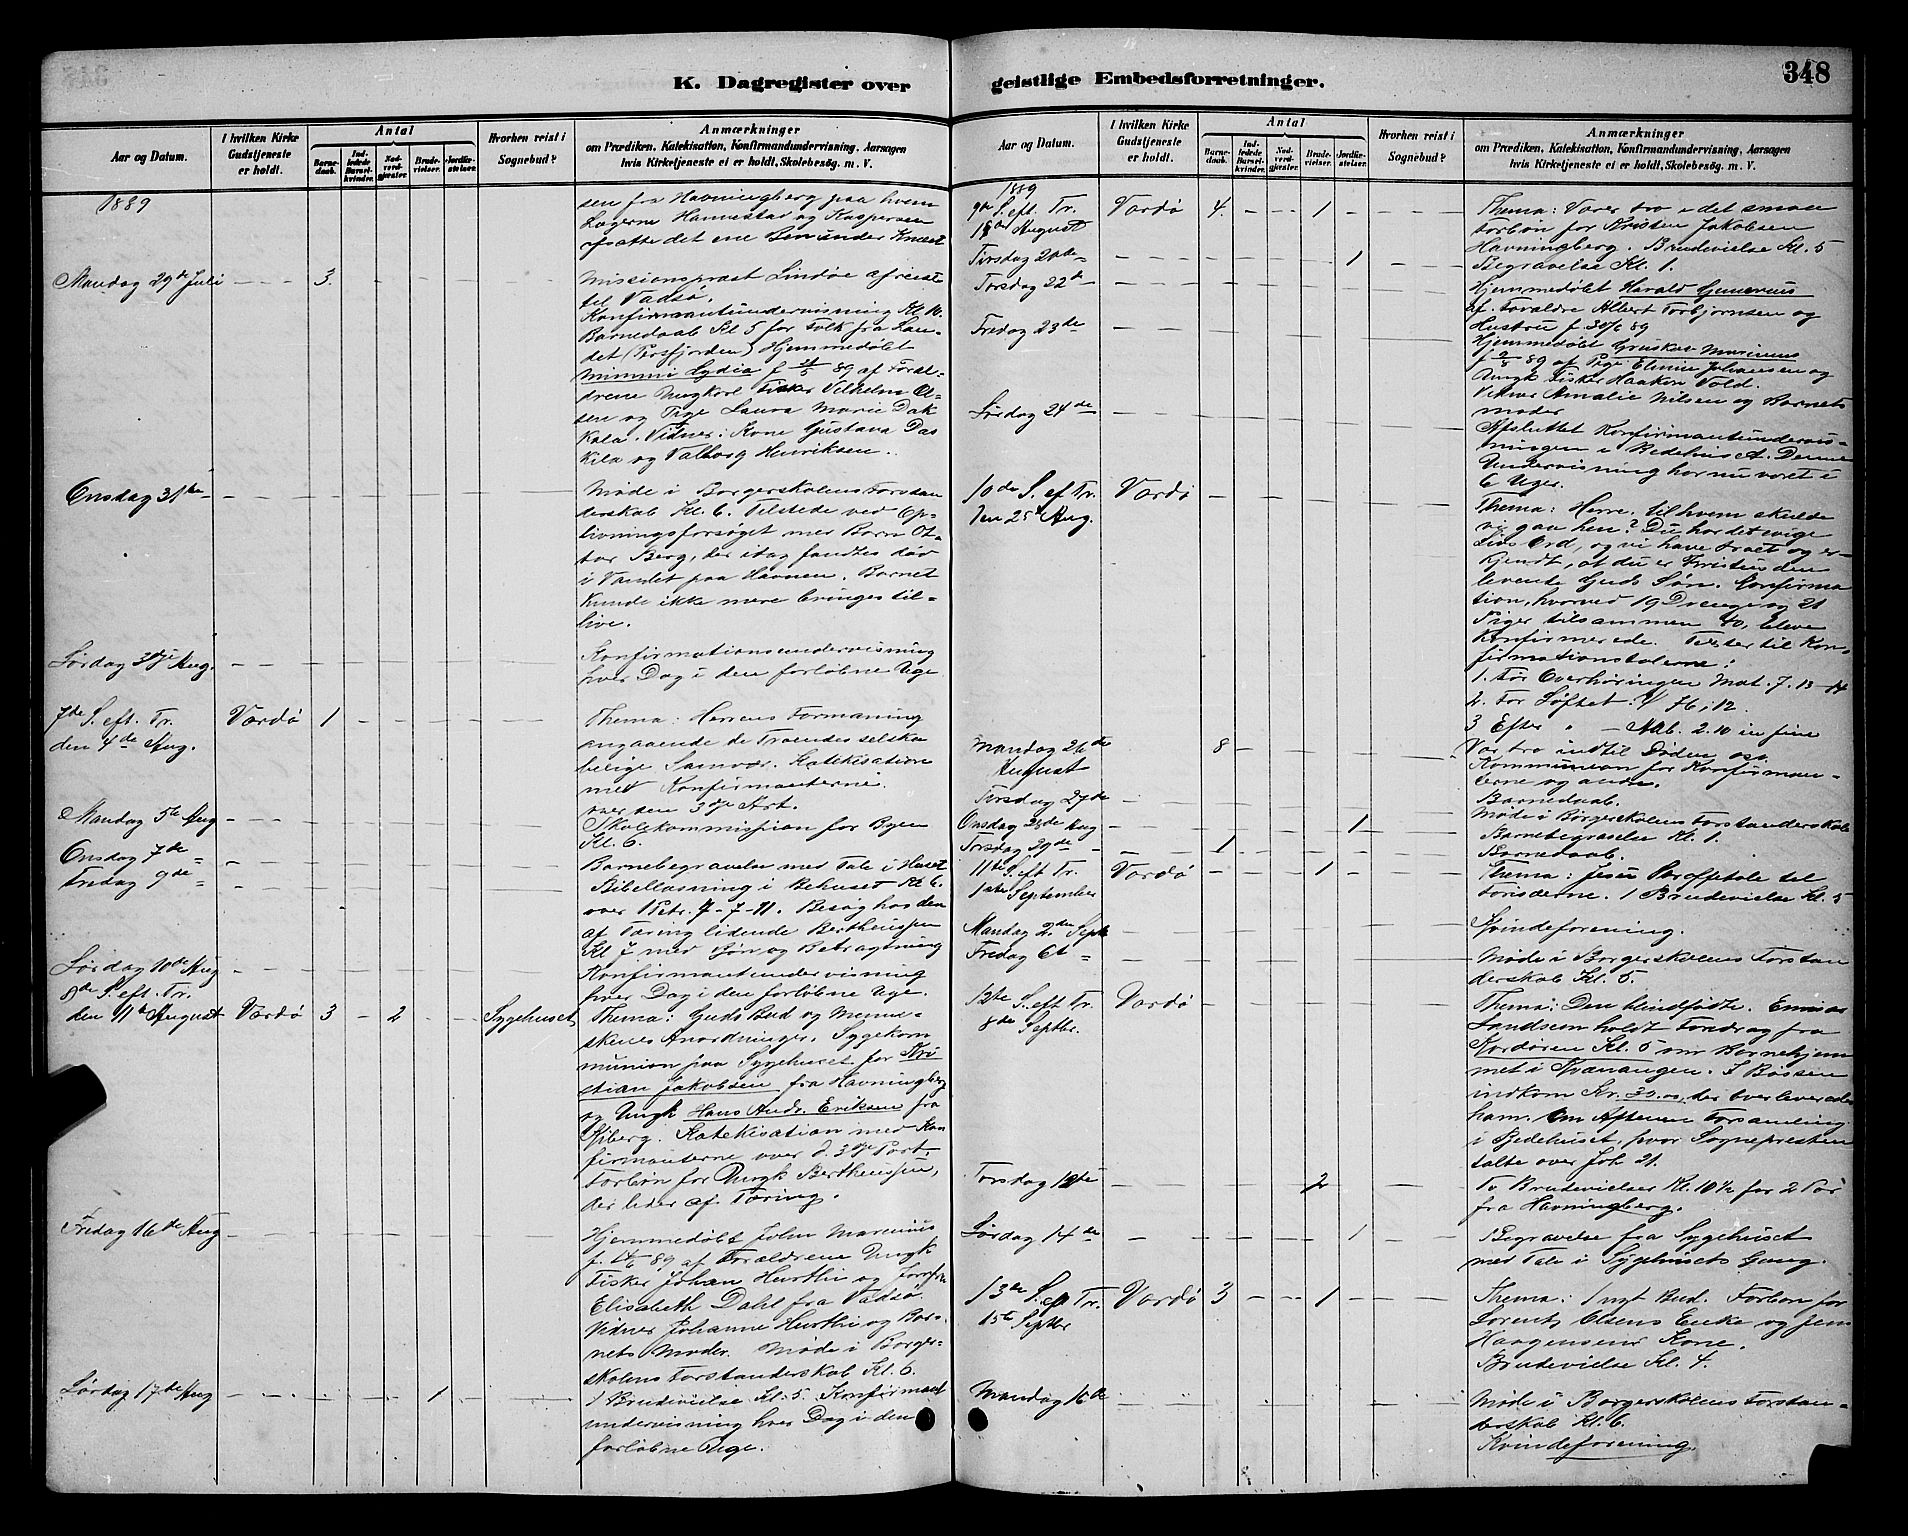 K. Dagregister over geistlige Embedsforretninger.
348
Aar og Datum.
I hvilken Kirke Gudstjeneste er holdt.
Antal
Barnedaab.
Indledede Barselkvinder.
Nadverdgjæster.
Brudevielser.
Jordfæstelser.
Hvorhen reist i Sognebud?
Anmærkninger
om Prædiken, Katekisation, Konfirmandundervisning, Aarsagen
hvis Kirketjeneste ei er holdt, Skolebesøg. m. V.
1889
sen fra Havningberg paa hvem
Lægerne Hannestad og Kaspersen
afsatte det ene Ben under Knæet
Mandag 29de Juli - - - 3. - - - -
Missionsprest Lindøe afreiste
til Vadsø.
Konfirmantundervisning Kl 10.
Barnedaab Kl 5 for Folk fra Lan-
det (Persfjorden) Hjemmedøbt
Mimmi Lydia f 21/5 89 af Foræl-
drene Ungkarl Fisker Vilhelm Ol-
sen og Pige Laura Marie Dak
kala. Vidner: Kone Gustava Das
kila og Valborg Henriksen.
Onsdag 31te
Møde i Borgerskolens Forstan
derskab Kl. 6. Tilstede ved Op-
livningsforsøget mer Barn Ot-
tar Berg, der idag fandtes død
i Vandet paa Havnen. Barnet
kunde ikke mere bringes til-
live.
Lørdag 3dje Aug.
Konfirmationsundervisning
hver Dag i den forløbne Uge
7de S. eft. Tr. Vardø 1
den 4de Aug.
Thema: Herrens Formaning
angaaende de Troendes selska
belige Samvær. Katekisation
med Konfirmanterne.
over den 3dje Art.
Mandag 5te Aug
Skolekommission for Byen
Kl. 6.
Onsdag 7de "
Barnebegravelse med Tale i Huset
Fredag 9de "
Bibellæsning i Behuset Kl 6.
over 1 Petr. 4-7-11. Besøg hos den
af Tæring lidende Berthenssen
Kl 7 med Bøn og Betragtning
Lørdag 10de Aug
Konfirmantundervisning
hver Dag i den forløbne Uge.
8de S. eft. Tr.
den 11te August Vardø 3 - 2 - - Sygehuset
Thema: Guds Bud og Menne-
skenes Anordninger. Sygekom
munion paa Sygehuset for Kri
stian Jakobsen fra Havningberg
og Ungk Hans Andr. Eriksen fra
Kiberg. Katekisation med Kon
firmanterne over d. 3dje Part.
Forbøn for Ungk Berthenssen,
der lider af Tæring.
Fredag 16de Aug
Hjemmedøbt John Marenius
f. 89 af Forældrene Ungk
Fisker Johan Hurthi og Jomfru
Elisabeth Dahl fra Vadsø.
Vidner Johanne Hurthi og Bar-
nets Moder. Møde i Borger-
skolens Forstanderskab Kl. 6.
Lørdag 17de Aug 1
1 Brudevielse Kl. 5. Konfirmant
undervisning hver Dag i den
forløbne Uge.
Aar og Datum.
I hvilken Kirke Gudstjeneste er holdt.
Antal
Barnedaab.
Indledede Barselkvinder.
Nadverdgjæster.
Brudevielser.
Jordfæstelser.
Hvorhen reist i Sognebud?
Anmærkninger
om Prædiken, Katekisation, Konfirmandundervisning, Aarsagen
hvis Kirketjeneste ei er holdt, Skolebesøg. m. V.
1889
9de S. eft. Tr. Vardø 4. - - - 1 -
18de August
Thema: Værer tro i det smaa
Forbøn for Kristen Jakobsen
Havningberg. Brudevielse Kl. 5
Tirsdag 20de 1
Begravelse Kl. 1.
Torsdag 22de
Hjemmedøbt Harald
af Forældre Albert Torbjørnsen og
Hustru f 30/6 89
Fredag 23de
Hjemmedøbt Marinus
f 2/8 89 af Pige Johansen og
Ungk Fisker Haakon Vold.
Vidner Amalie Nilsen og Barnets
moder
Lørdag 24de
Afsluttet Konfirmantundervis-
ningen i Bedehuset. Denne
Undervisning har nu varet i
6 Uger.
10de S. ef Tr. Vardø
den 25de Aug.
Thema: Herre, til hvem skulde
vi gaa hen? Du har det evige
Livs Ord, og vi have troet og er-
kjendt, at du er Kristus den
levende Guds Søn. Konfirma
tion, hvorved 19 Drenge og 21
Piger tilsammen 40, bleve
Konfirmerede. Texter til Kon-
firmationstalerne:
1. Før Overhøringen Mat. 7. 13-14
2. For Løftet: 76, 12
3 Efter " - Aab. 2. 10 in fine
Vær tro indtil Døden osv.
Kommunion for Konfirman-
terne og andre.
Mandag 26de August 8
Barnedaab.
Tirsdag 27de
Møde i Borgerskolens Forstanderskab
Onsdag 28de Aug 1
Barnebegravelse Kl. 1.
Torsdag 29de " 1
Barnedaab.
11te S. eft Tr. Vardø - - - 1
1ste September
Thema: Jesu til
1 Brudevielse Kl. 5
Mandag 2den Septb
Kvindeforening.
Fredag 6te "
Møde i Borgerskolens Forstan
derskab Kl. 5.
12te S. eft Tr. Vardø
8de Septbr.
Thema: Den blindfødte.
Landsem holdt Foredrag fra
Kordøren Kl. 5 om Barnehjem
met i Kvænangen. I Bøssen
indkom Kr. 30.00, der overleveredes
ham. Om Aftenen Forsamling
i Bedehuset, hvor Sognepresten
talte over Joh 21.
Torsdag 12te 2
To Brudevielser Kl. 10½ for 2 Par
fra Havningberg.
Lørdag 14de 1
Begravelse fra Sygehuset
med Tale i Sygehusets Gang.
13de S. ef Tr. Vardø 3 - - 1
15de Septbr
Thema: 1 nyt Bud. Forbøn for
Lorentz Olsens Enke og Jens
Haagensens Kone.
Brudevielse Kl. 4.
Mandag 16de
Møde i Borgerskolens Forstan-
derskab Kl. 6.
Kvindeforening.